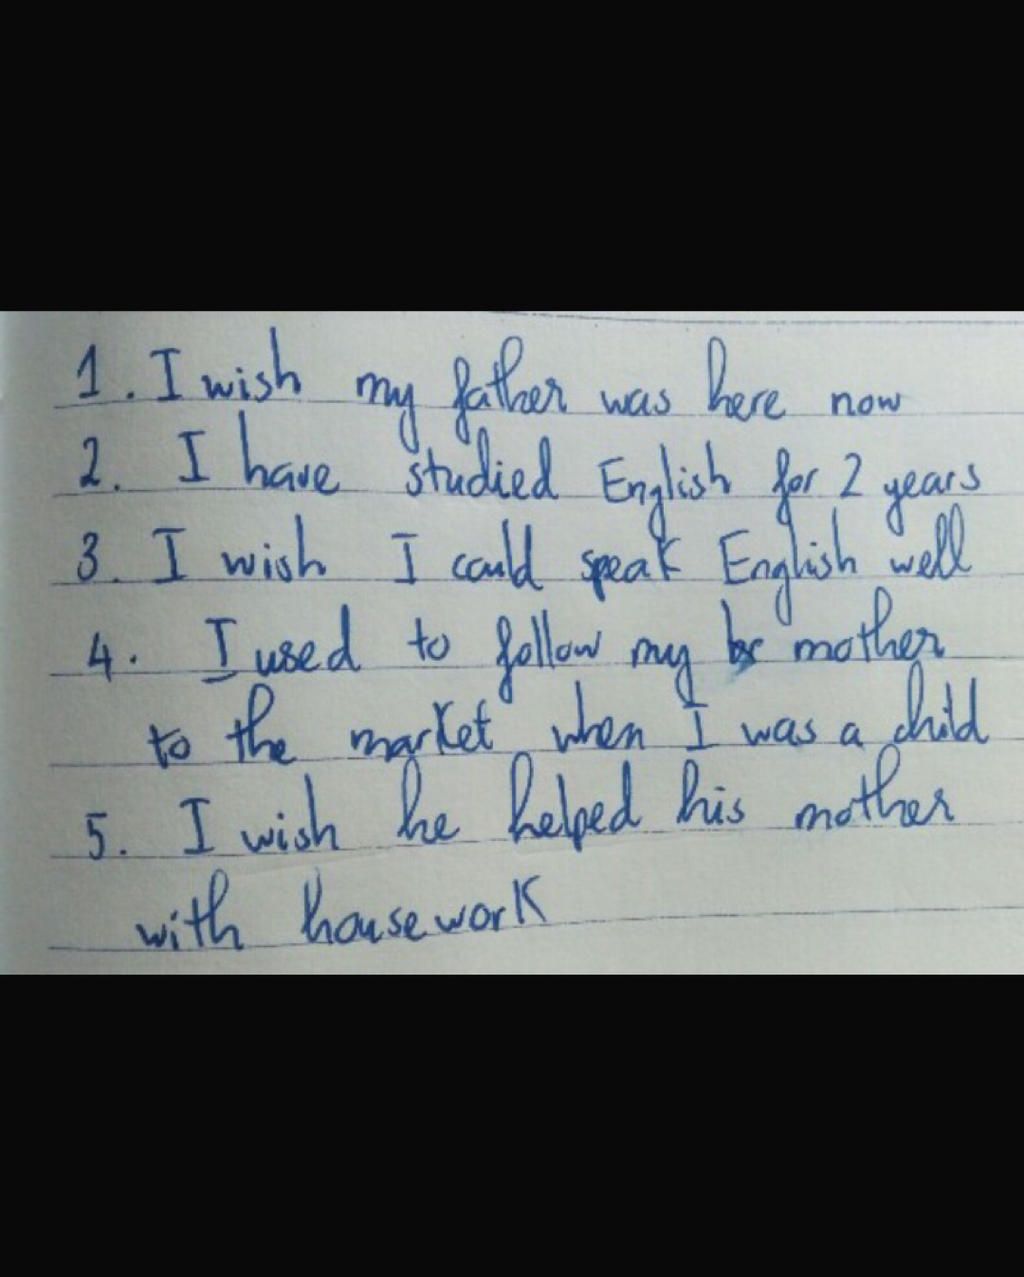 1. I wish my father was here now
2. I have studied English for 2 years
3. I wish I could speak English well
4. I used to follow my mother
to the market when I was a child
5. I wish he helped his mother
with housework